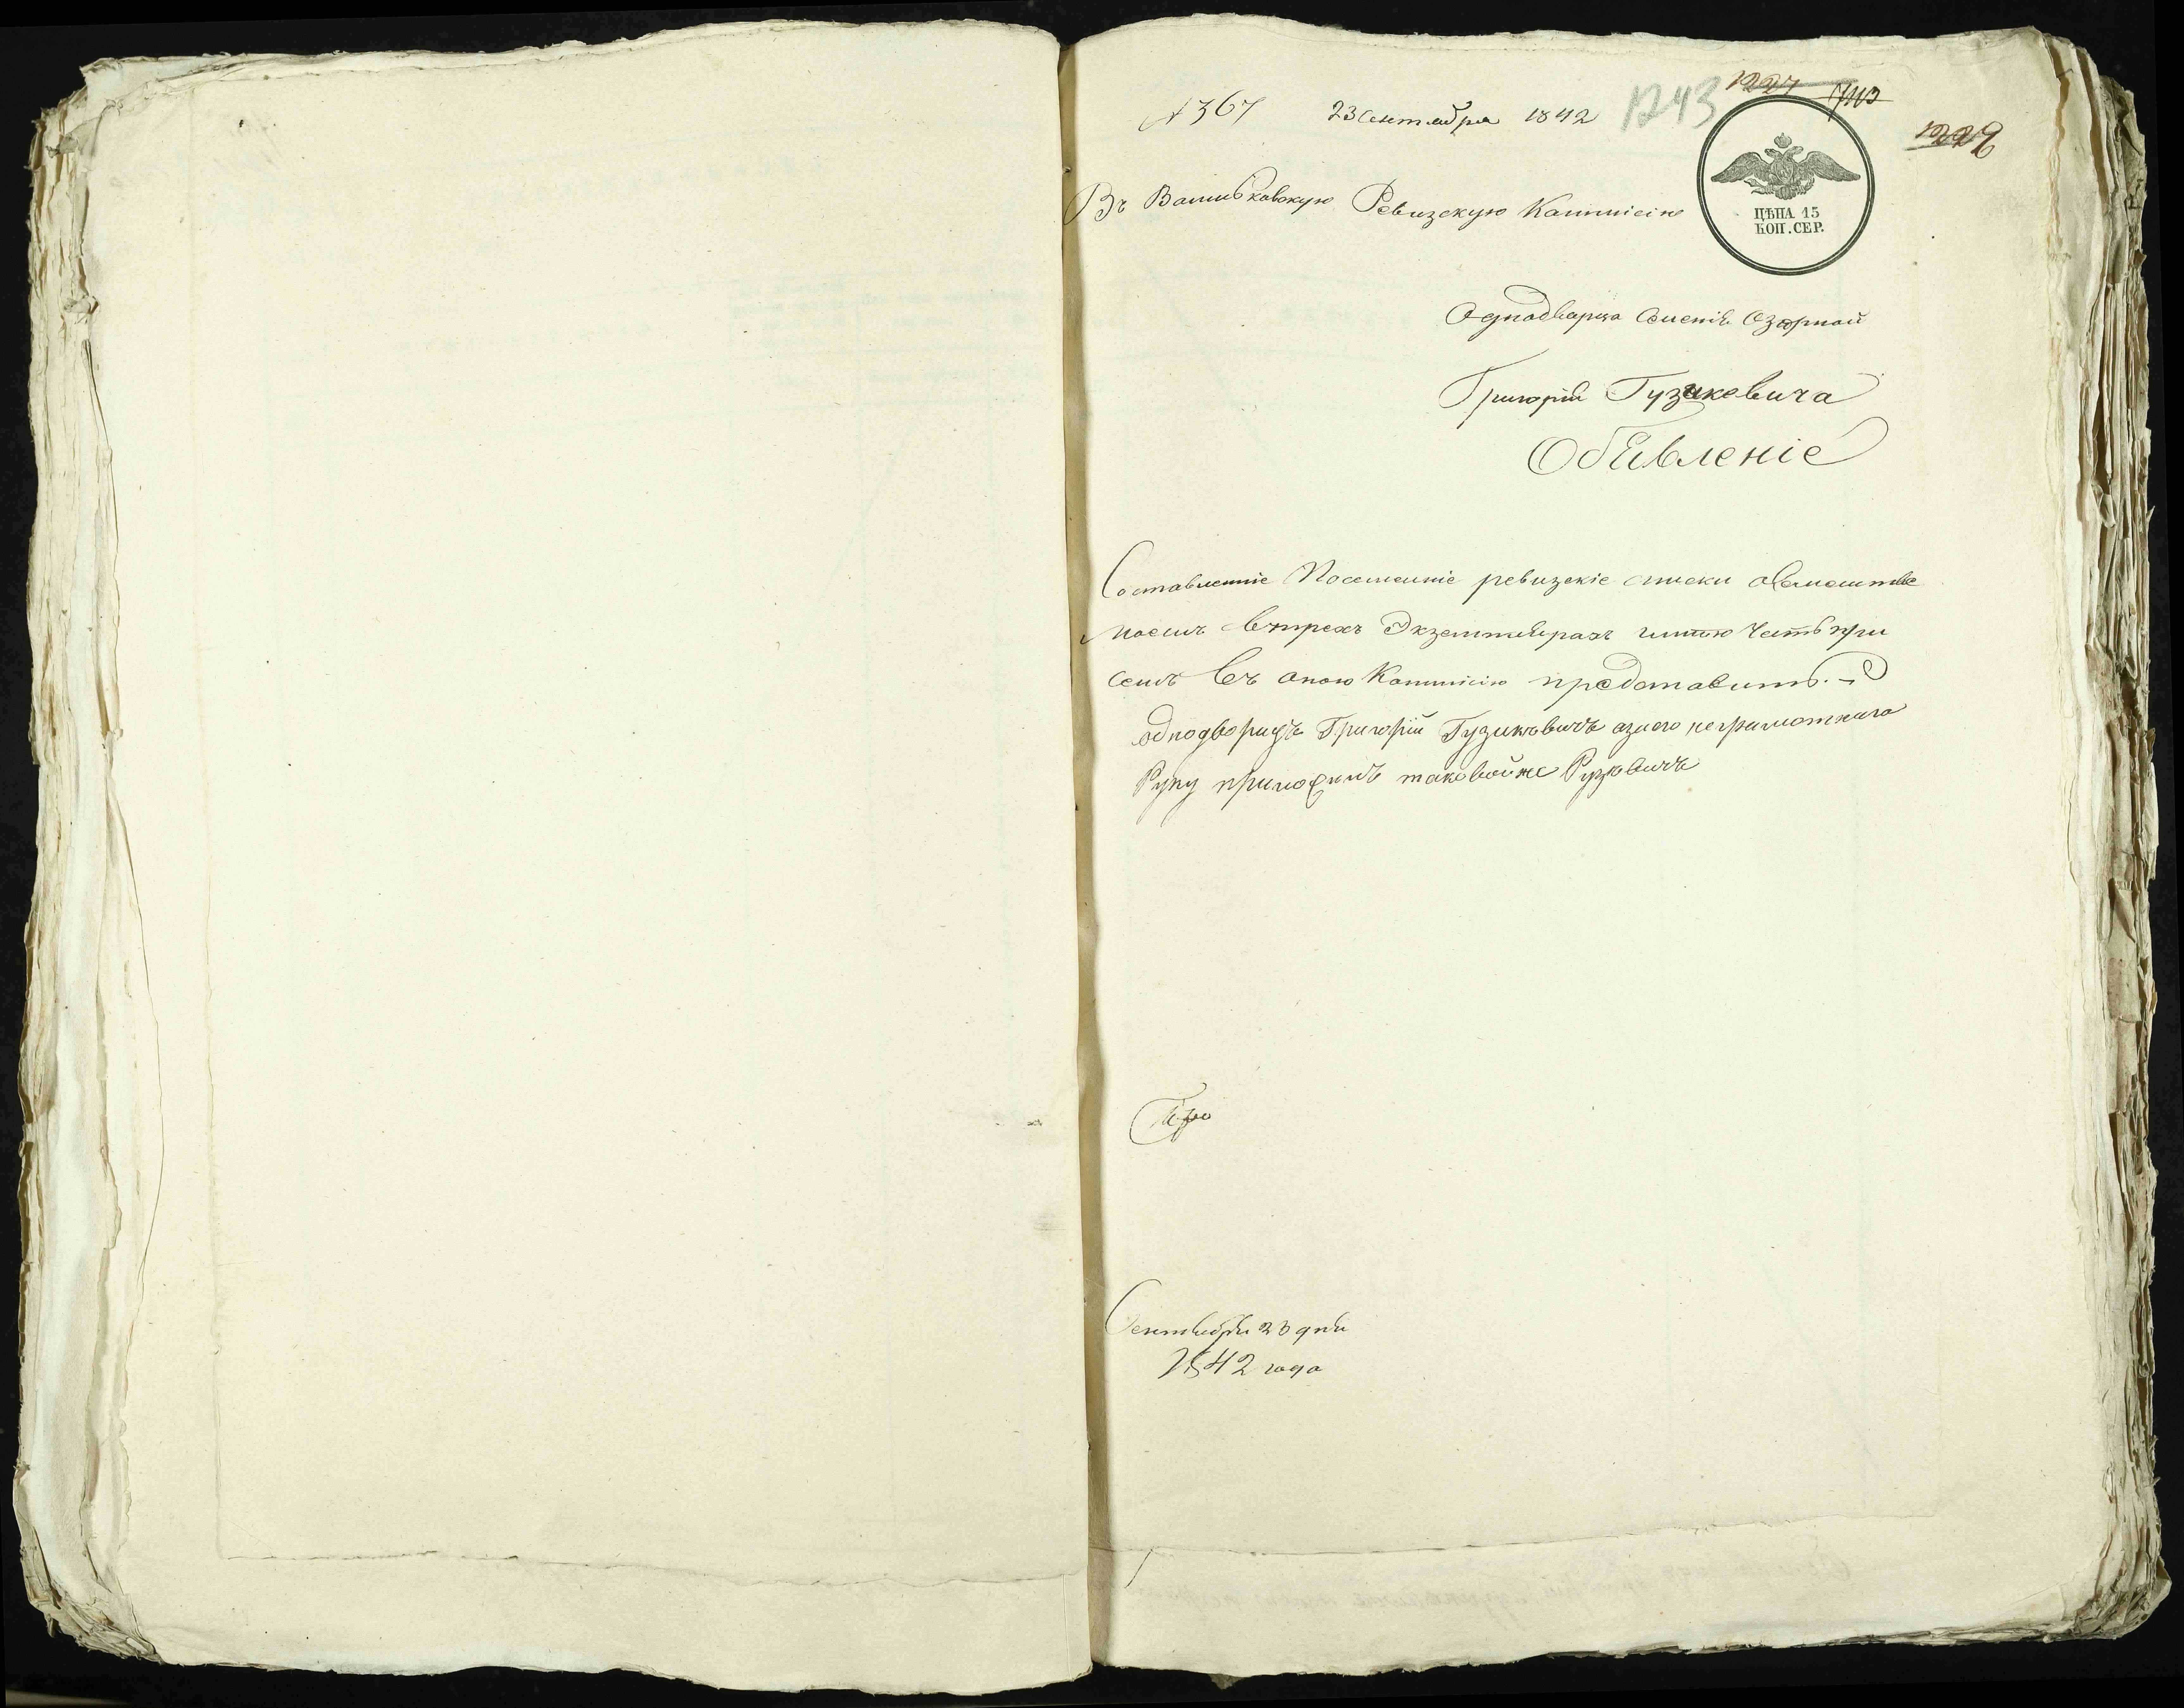 № 367 23 Сентября 1842 1243 1227
1229
Въ Васильковскую Ревизскую Коммисію
ЦѢНА 15
КОП. СЕР.
Однодворца Селенія Озорной
Григорія Гузикевича
Объявленіе
Составленніе Посемейніе ревизскіе списки о семействе
моемъ втрехъ Экземплярахъ имею Честь при
семъ въ оною Коммисію представить.
однодворецъ Григорій Гузикевичъ азаего неграмотнаго
Руку приложилъ таковойже Рузкевичъ
Сентября 23 дня
1842 года